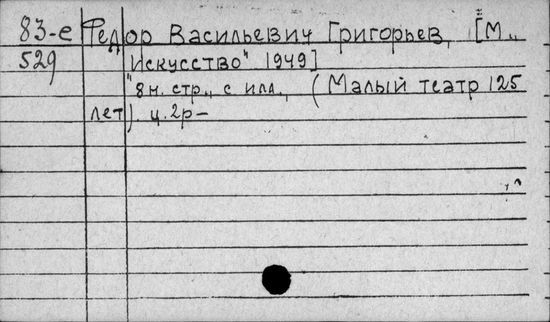 83-е Федор Васильевич Григорьев, [М.,
529 "Искусство" 1949]
8 н. стр., с илл., (Малый театр 125
лет). ц. 2р —